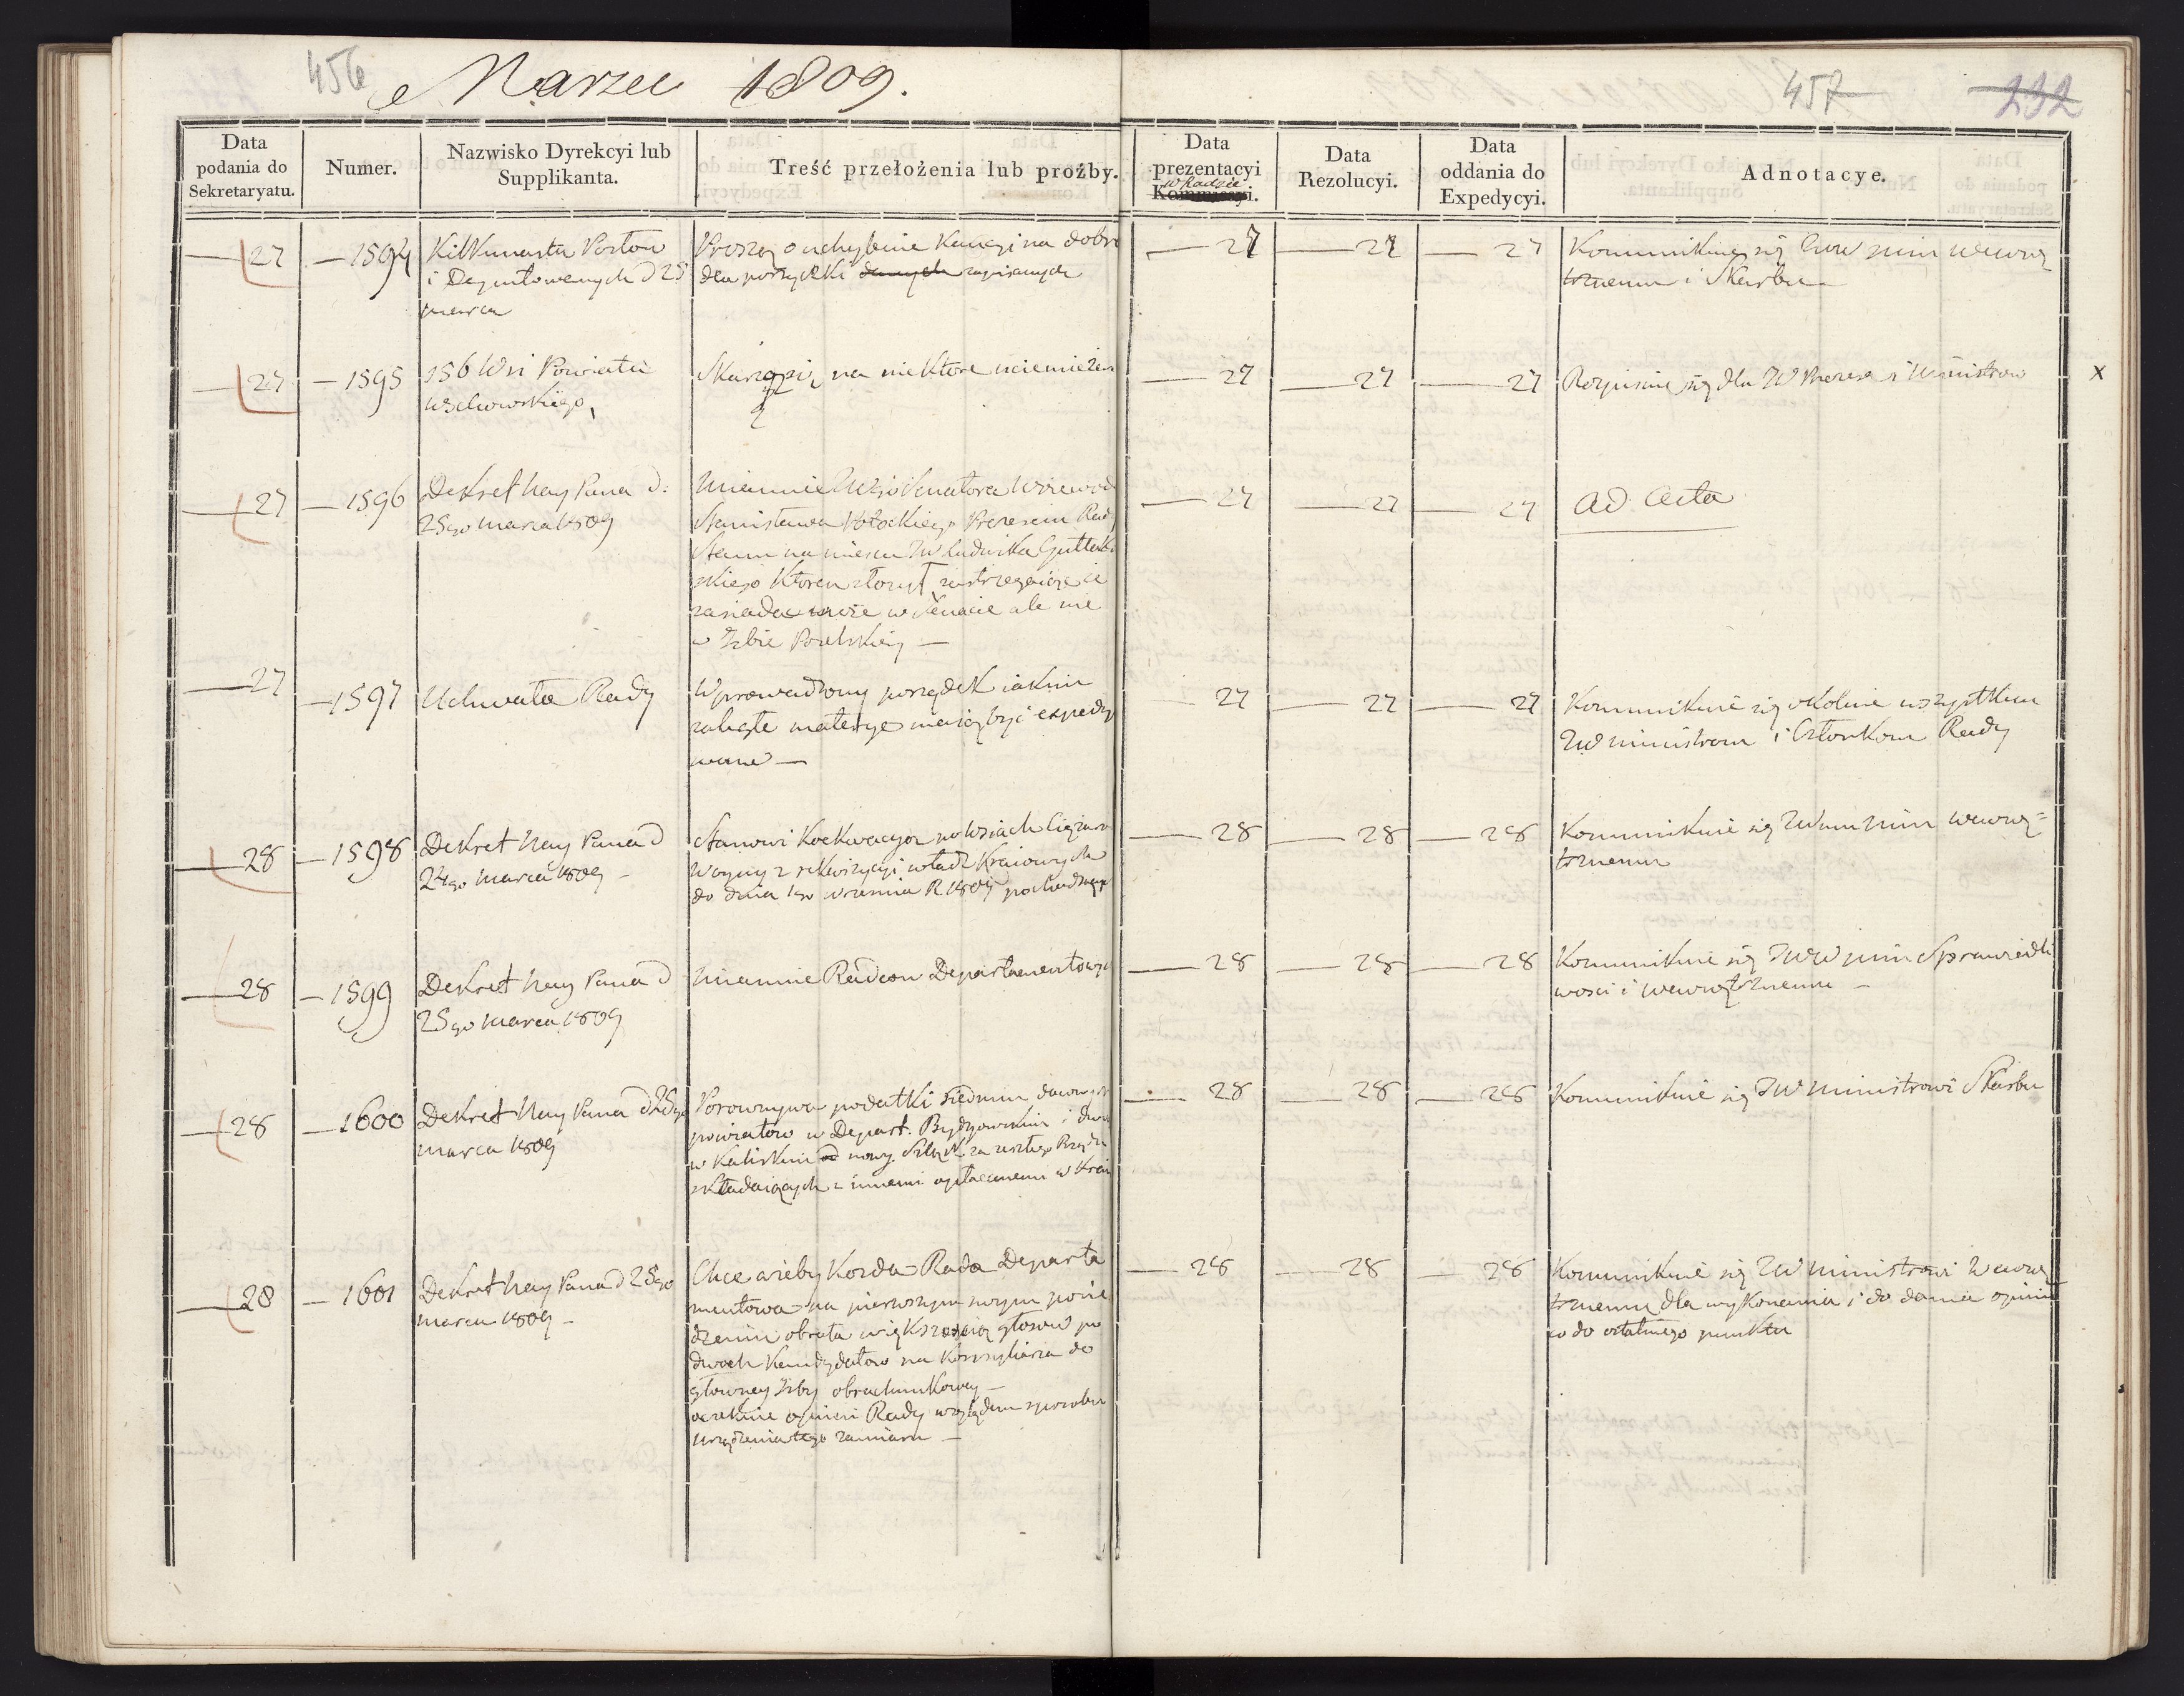 456
Marzec 1809.
457
232
Data podania do Sekretaryatu.
Numer.
Nazwisko Dyrekcyi lub Supplikanta.
Treść przełożenia lub proźby.
Data prezentacyi Kommissyi.
w Radzie
Data Rezolucyi.
Data oddania do Expedycyi.
Adnotacye.
27
1594
Kilkunastu Posłow
i Deputowanych d 25
marca
Proszą o uchylenie Kaucyi na dobra
dla pożyczki danych zapisanych
27
27
27
Kommunikuie się JWW min wewnę
trznemu i Skarbu
27
1595
156 Wsi Powiatu
Wschowskiego
Skarżą się na niektore uciemiężen
27
27
27
Rozpisuie się dla JW Prezesa i Ministrow
x
27
1596
Dekret Nay Pana d:
25go marca 1809
Mianuie JWgo Senatora Woiewod
Stanisława Potockiego Prezesem Rady
Stanu na miescu JW Ludwika Gutakow
skiego ktoren złożył zastrzegaiąc iż
zasiadać może w Senacie ale nie
w Izbie Poselskiey —
27
27
27
Ad Acta
27
1597
Uchwała Rady
Wprowadzony porządek iakim
zaległe materye maią być expedy
wane —
27
27
27
Kommunikuie się okolnie wszystkim
JW Ministrom i Członkom Rady
28
1598
Dekret Nay Pana d
24go marca 1809 –
Stanowi Koekwacyą po Wsiach Ciężarow
Woyny z rekwizycyi władz Kraiowych
do dnia 1go wrzesnia R 1809 pochodzących
28
28
28
Kommunikuie się JWmu Min wewnę=
trznemu
28
1599
Dekret Nay Pana d
25go marca 1809
Mianuie Radcow Departamentowych
28
28
28
Kommunikuie się JWW min Sprawiedli
wosci i wewnętrznemu –
28
1600
Dekret Nay Pana d 25go
marca 1809
Porownywa podatki siedmiu dawnych
powiatow w Depart. Bydgowskim i dwoch
w Kaliskim od nowy Szląsk za zeszłego Rządu
składaiących z innemi opłacanemi w Kraiu
28
28
28
Kommunikuie się JW Ministrowi Skarbu
28
1601
Dekret Nay Pana d 25go
marca 1809 –
Chce ażeby Każda Rada Departa
mentowa na pierwszym swym posie
dzeniu obrała większością głosow po
dwoch Kandydatow na Konsyliarza do
głowney Izby obrachunkowey –
oczekuie opinii Rady względem sposobu
urządzenia tego zamiaru –
28
28
28
Kommunikuie się JW Ministrowi Wewnę
trznemu dla wykonania i do dania opinii
co do ostatniego punktu